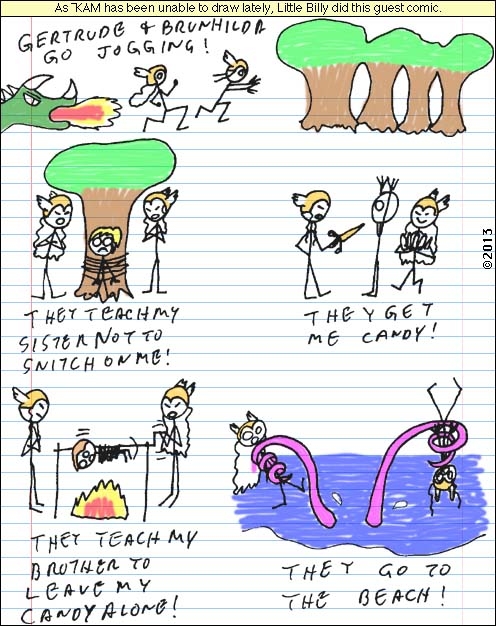 As TKAM has been unable to draw lately, Little Billy did this guest comic.
GERTRUDE & BRUNHILDA
GO JOGGING!
THEY TEACH MY
SISTER NOT TO
SNITCH ON ME!
THEY GET
ME CANDY!
©2013
THEY TEACH MY
BROTHER TO
LEAVE MY
CANDY ALONE!
THEY GO TO
THE BEACH!